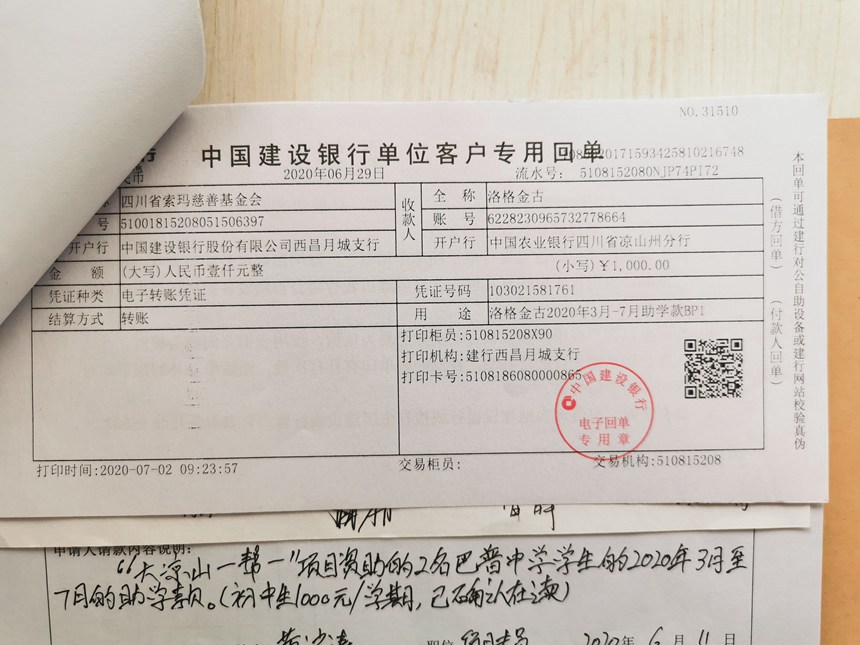 NO.31510
中国建设银行单位客户专用回单
币
2020年06月29日
流水号： 5108152080NJP74PI72
四川省索玛慈善基金会
收款人
全 称
洛格金古
号
51001815208051506397
账 号
6228230965732778664
开户行
中国建设银行股份有限公司西昌月城支行
开户行
中国农业银行四川省凉山州分行
金 额
(大写)人民币壹仟元整
(小写)￥1,000.00
凭证种类
电子转账凭证
凭证号码
103021581761
结算方式
转账
用 途
洛格金古2020年3月-7月助学款BP1
打印柜员:510815208X90
打印机构:建行西昌月城支行
打印卡号:5108186080000865
中国建设银行
电子回单
专用章
打印时间:2020-07-02 09:23:57
交易柜员:
交易机构:510815208
本回单可通过建行对公自助设备或建行网站校验真伪
(借方回单)
(付款人回单)
申请人请款内容说明:
“大凉山一帮一”项目资助的2名巴普中学学生的2020年3月至
7月的助学款。(初中生1000元/学期,已确认在读)
职位
2020年 6 月 11 日